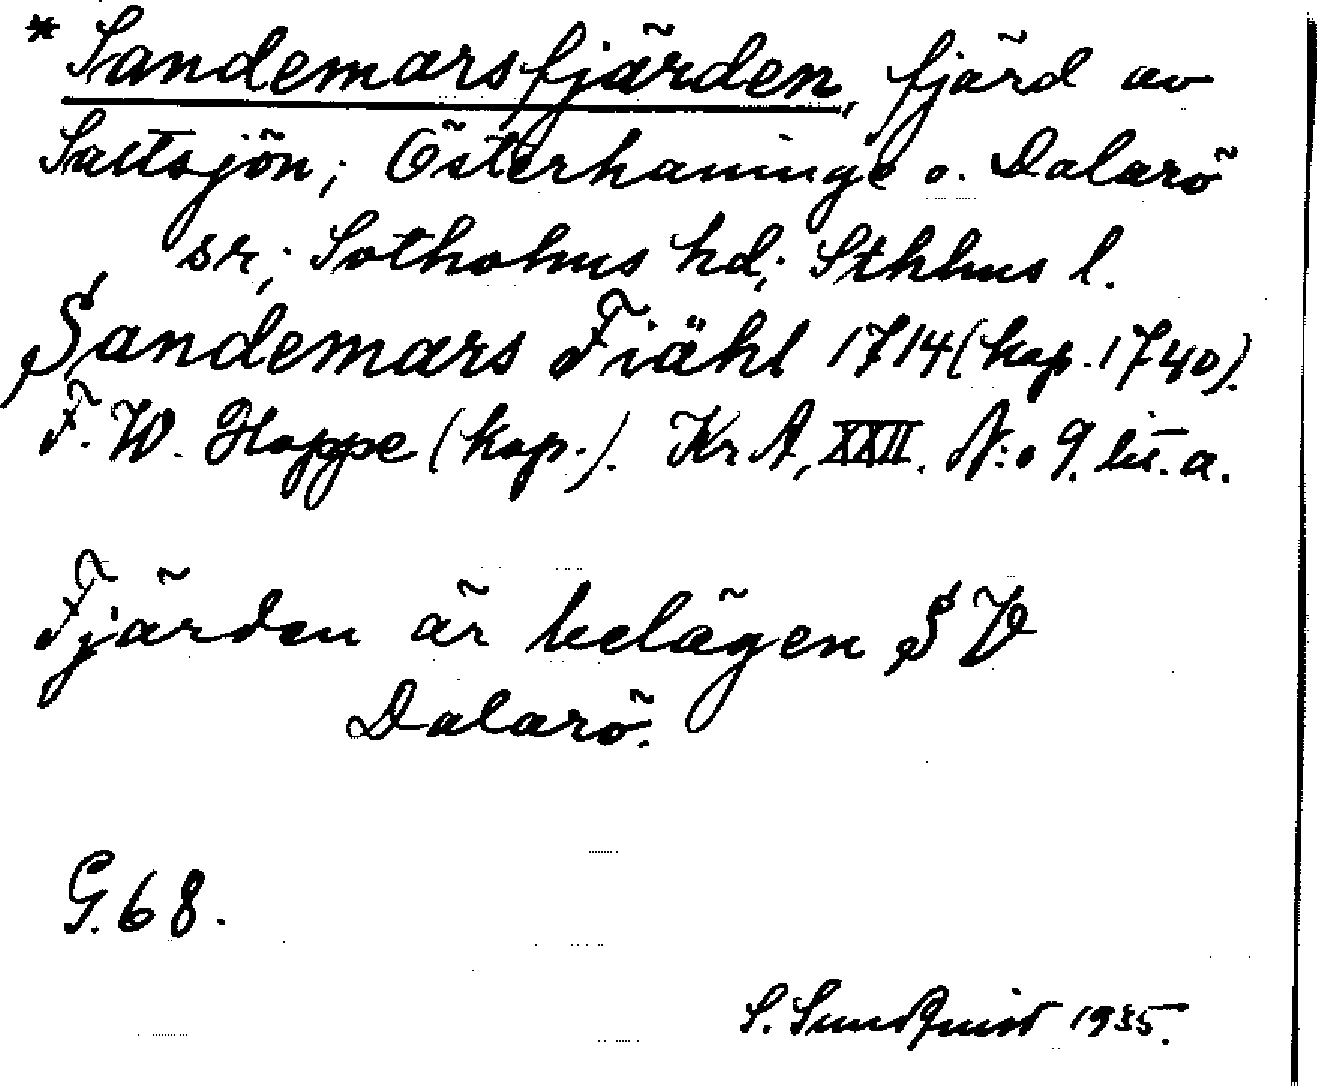 * Sandemarsfjärden, fjärd av
Saltsjön; Österhaninge o. Dalarö
sr; Sotholms hd; Sthlms l.
Sandemars Fiähl 1714 (kop. 1740).
F. W. Hoppe (kop.). Kr A, XXII. N:o 9. lit. a.
Fjärden är belägen SV
Dalarö.
G. 68.
S. Sundquist 1935.